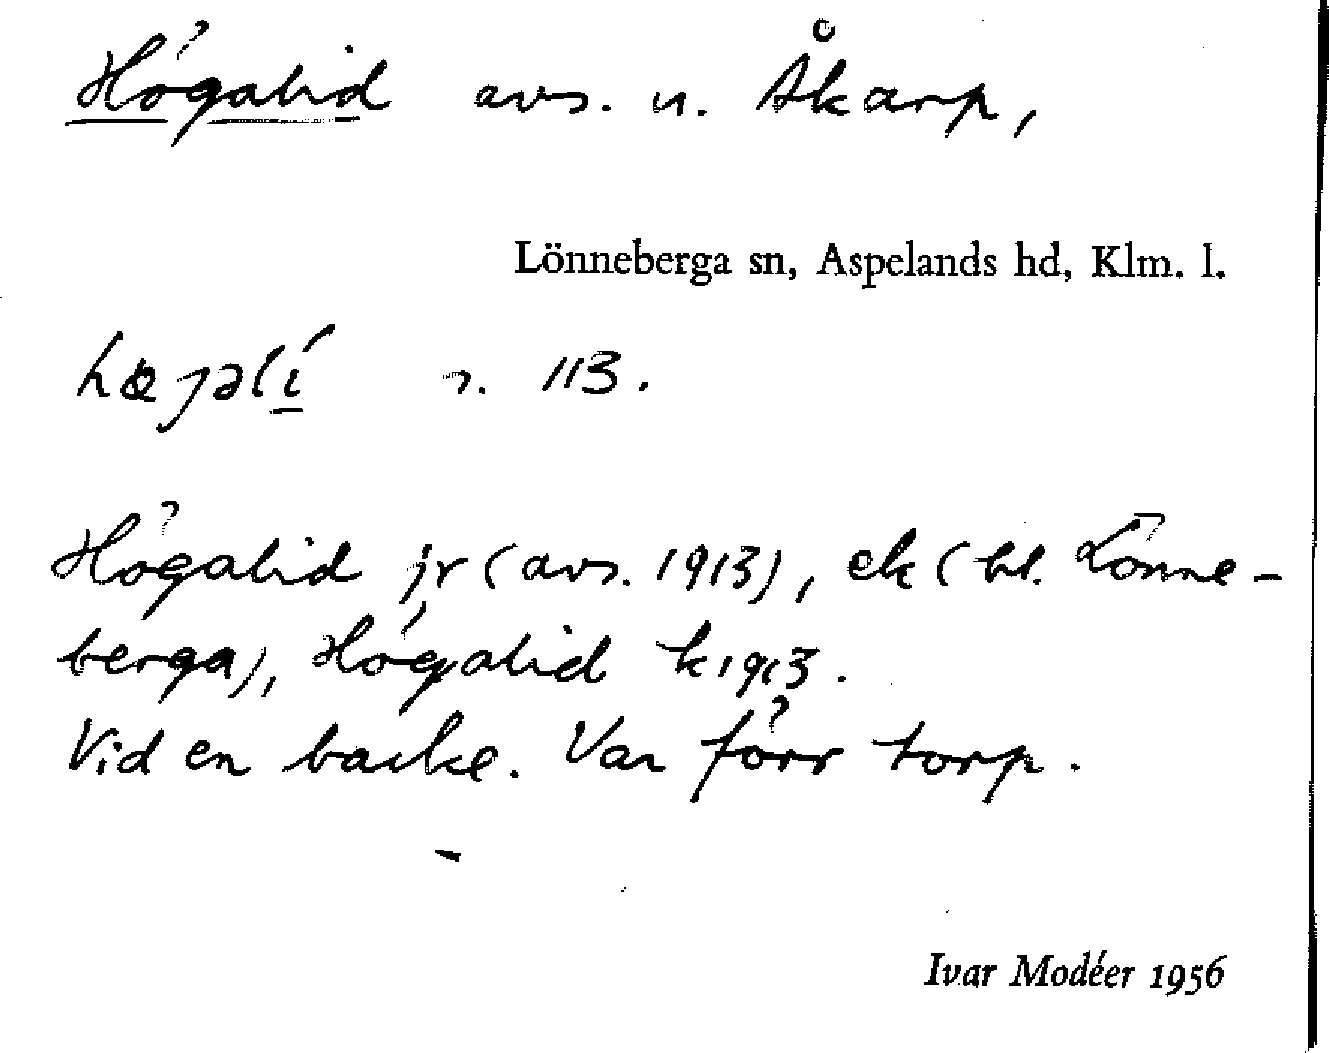 Högalid avs. u. Åkarp,
Lönneberga sn, Aspelands hd, Klm. l.
hœȷəlí n. 113.
Högalid jr (avs. 1913), ek (bl. Lönne-
berga), Högalid k 1913.
Vid en backe. Var förr torp.
Ivar Modéer 1956